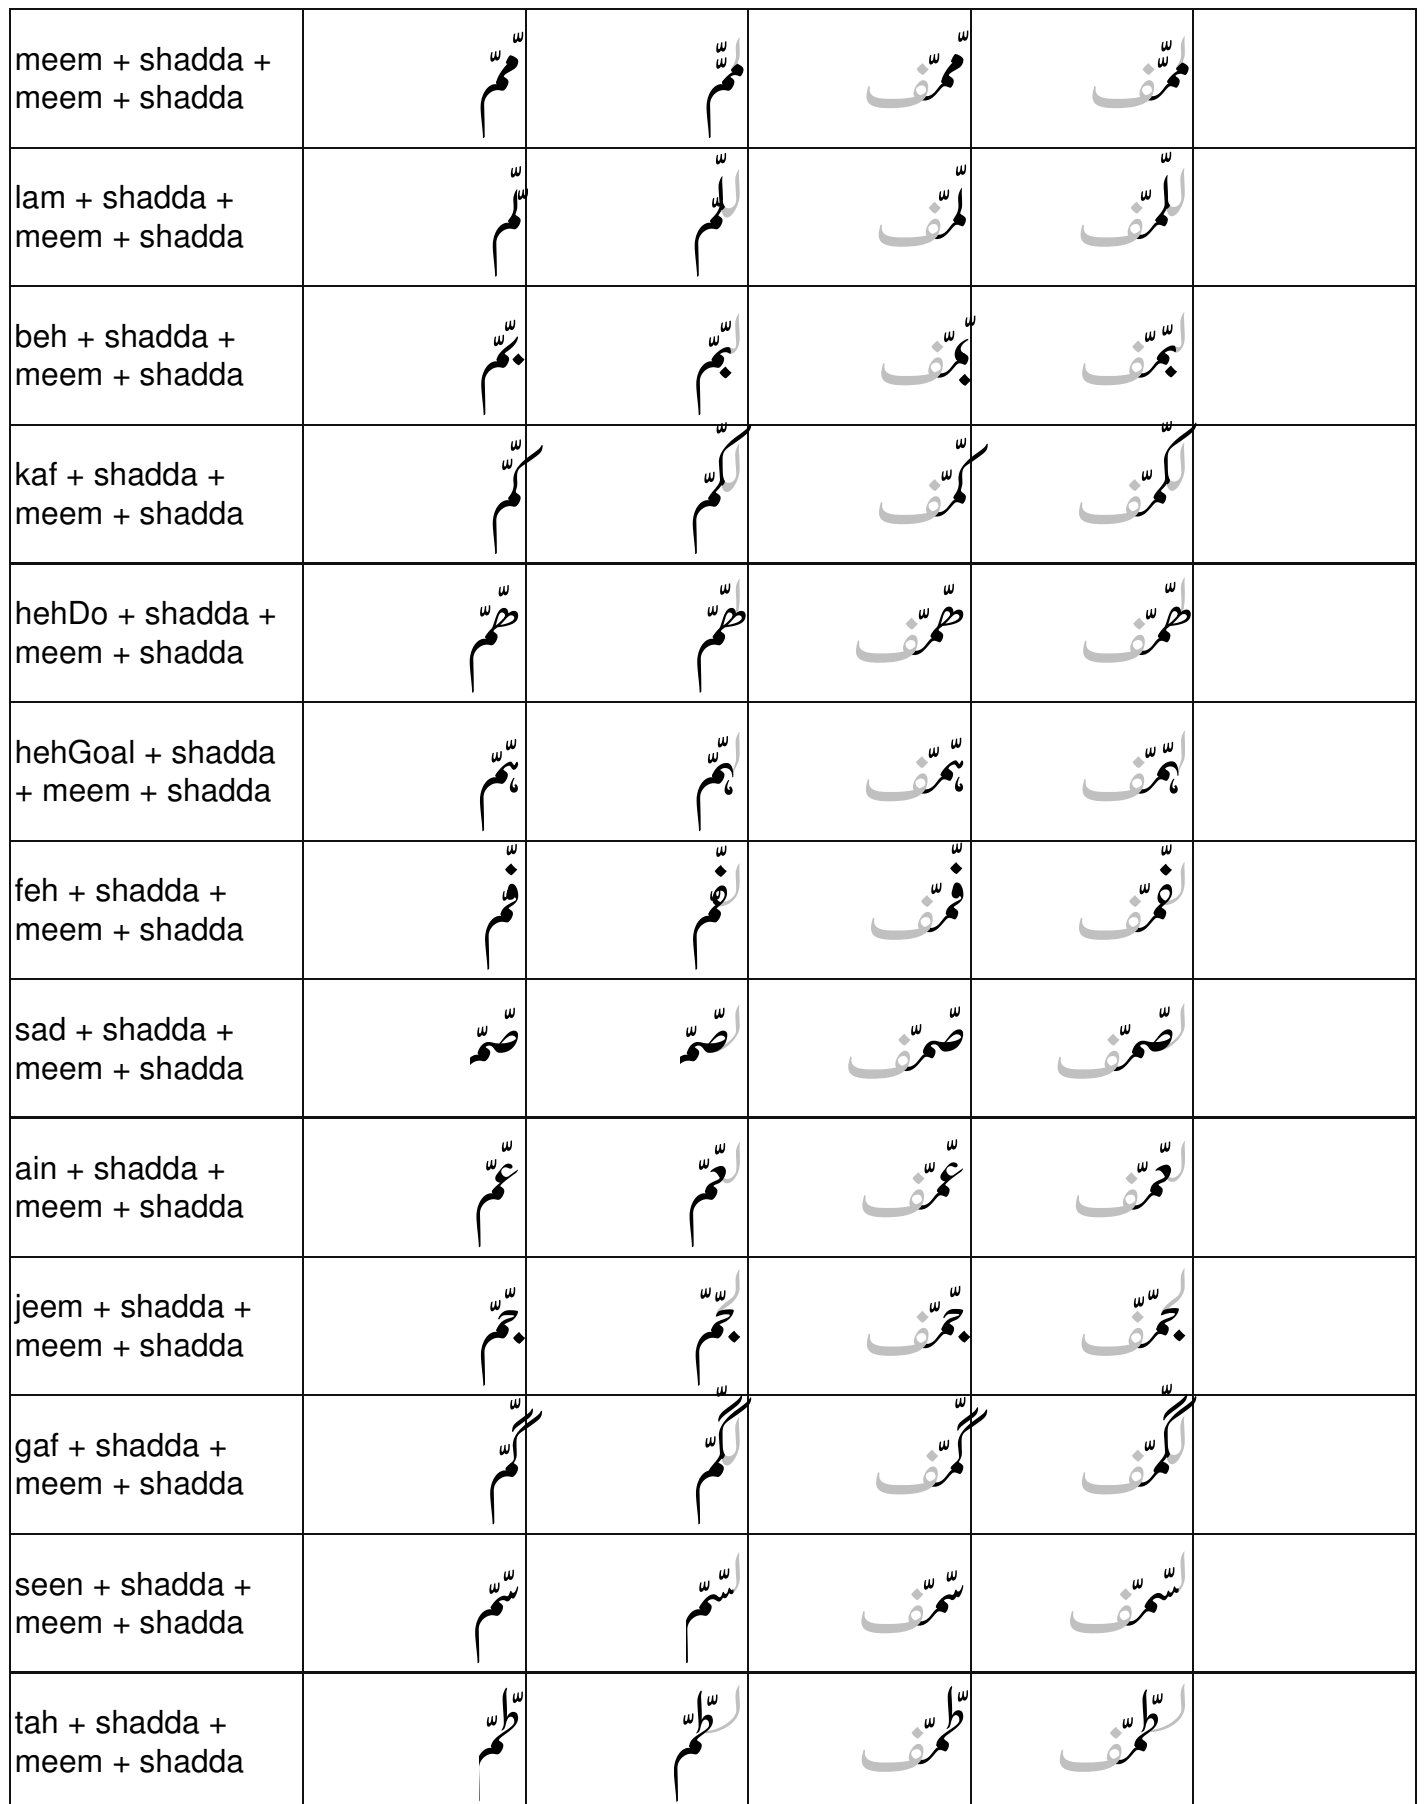 meem + shadda +
meem + shadda
مّمّ لمّمّ مّمّف لمّمّف
lam + shadda +
meem + shadda
لّمّ للّمّ لّمّف للّمّف
beh + shadda +
meem + shadda
بّمّ لبّمّ بّمّف لبّمّف
kaf + shadda +
meem + shadda
کّمّ لکّمّ کّمّف لکّمّف
hehDo + shadda +
meem + shadda
ھّمّ لھّمّ ھّمّف لھّمّف
hehGoal + shadda
+ meem + shadda
ہّمّ لہّمّ ہّمّف لہّمّف
feh + shadda +
meem + shadda
فّمّ لفّمّ فّمّف لفّمّف
sad + shadda +
meem + shadda
صّمّ لصّمّ صّمّف لصّمّف
ain + shadda +
meem + shadda
عّمّ لعّمّ عّمّف لعّمّف
jeem + shadda +
meem + shadda
جّمّ لجّمّ جّمّف لجّمّف
gaf + shadda +
meem + shadda
گّمّ لگّمّ گّمّف لگّمّف
seen + shadda +
meem + shadda
سّمّ لسّمّ سّمّف لسّمّف
tah + shadda +
meem + shadda
طّمّ لطّمّ طّمّف لطّمّف